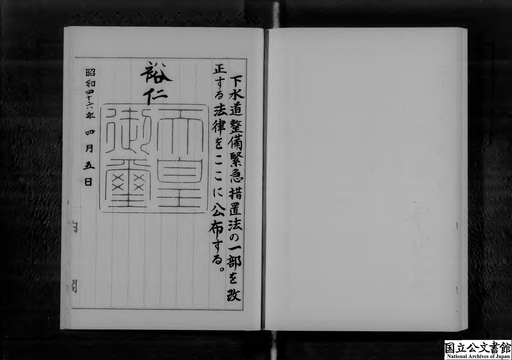 下水道整備緊急措置法の一部を改
正する法律をここに公布する。
裕仁
天皇
御璽
昭和四十六年四月五日
内閣
国立公文書館
National Archives of Japan